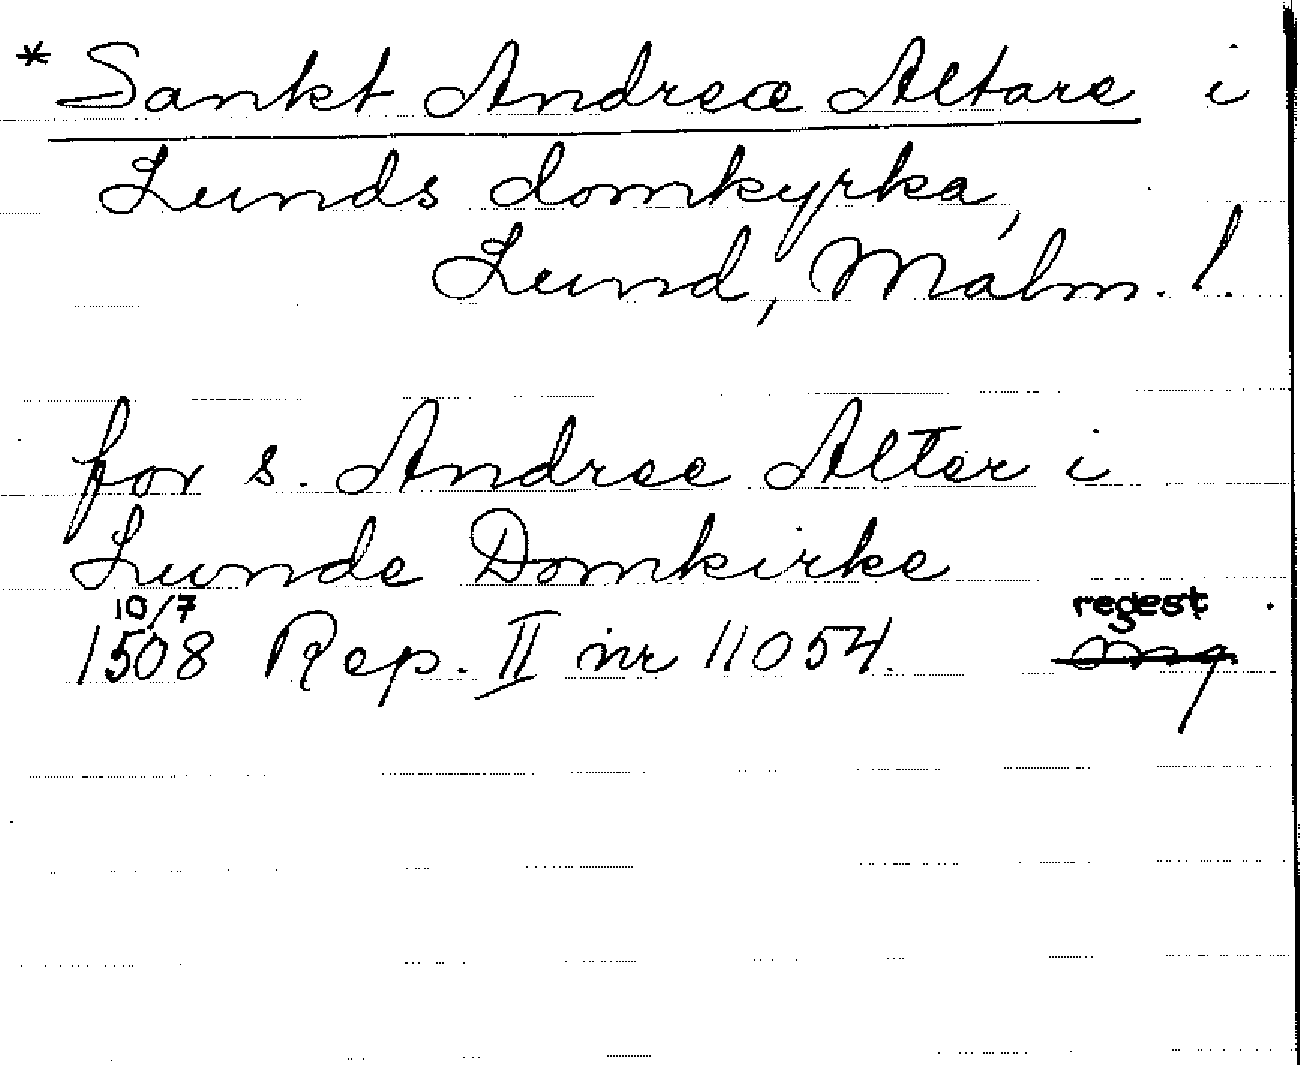 * Sankt Andreæ Altare i
Lunds domkyrka,
Lund, Malm. l.
for s. Andree Alter i
Lunde Domkirke
10/7
1508 Rep. II nr 11054.
regest